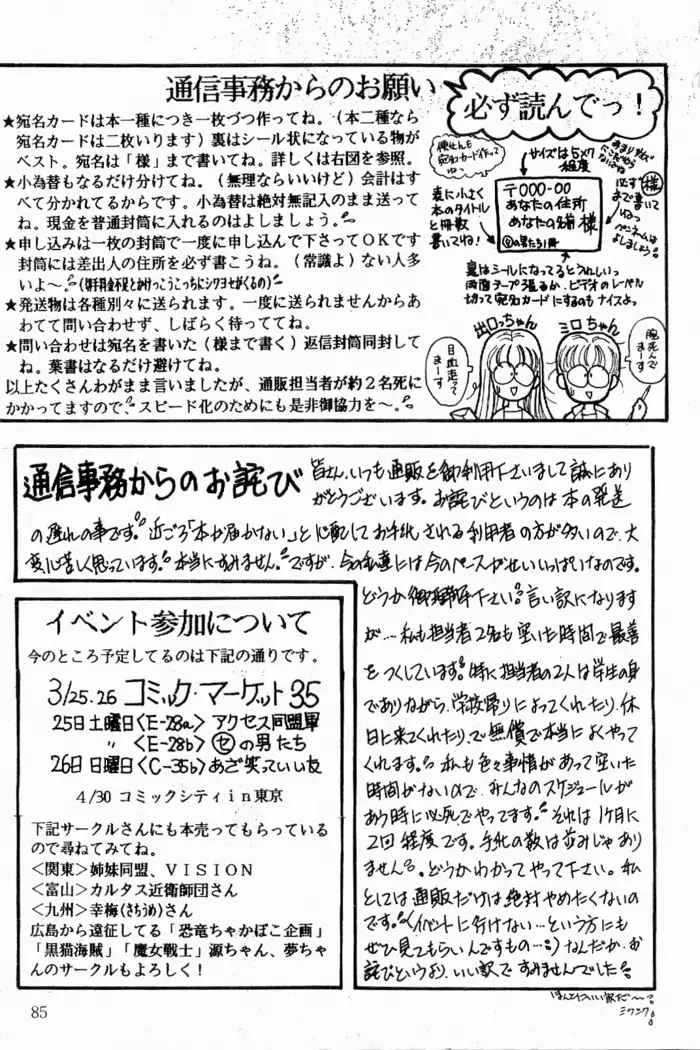 通信事務からのお願い
必ず読んでっ！
★宛名カードは本一種につき一枚づつ作ってね。(本二種なら
宛名カードは二枚いります)裏はシール状になっている物が
ベスト。宛名は「様」まで書いてね。詳しくは右図を参照。
★小為替もなるだけ分けてね。(無理ならいいけど)会計はす
べて分かれてるからです。小為替は絶対無記入のまま送って
ね。現金を普通封筒に入れるのはよしましょう。
★申し込みは一枚の封筒で一度に申し込んで下さってＯＫです
封筒には差出人の住所を必ず書こうね。(常識よ)ない人多
いよ～。
★発送物は各種別々に送られます。一度に送られませんからあ
わてて問い合わせず、しばらく待っててね。
★問い合わせは宛名を書いた(様まで書く)返信封筒同封して
ね。葉書はなるだけ避けてね。
以上たくさんわがまま言いましたが、通販担当者が約２名死に
かかってますので、スピード化のためにも是非御協力を～。
サイズは5×7
程度
〒000-00
あなたの住所
あなたの名前 様
裏に小さく
本のタイトル
と冊数
書いてね!
必ず
様
まで書いて
ねっ
裏はシールになってるとうれしいっ
両面テープ張るか、ビデオのレーベル
切って宛名カードにするのもナイスよっ
出口っちゃん
ミロちゃん
目血走って
まーす
腕死んで
まーす
通信事務からのお詫び
皆さん、いつも通販を御利用下さいまして誠にあり
がとうございます。お詫びというのは本の発送
の遅れの事です。近ごろ「本が届かない」と心配してお手紙される利用者の方が多いので、大
変心苦しく思っています。本当にすみません。ですが、今の私達には今のペースがせいいっぱいなのです。
どうか御理解下さい。言い訳になります
が…私も担当者2名も空いた時間で最善
をつくしています。特に担当者の2人は学生の身
でありながら、学校帰りによってくれたり、休
日に来てくれたり、で無償で本当によくやって
くれます。私も色々事情があって空いた
時間がないので、みんなのスケジュールが
あう時に必死でやってます。それは1ケ月に
2回程度です。手紙の数は並みじゃあり
ません。どうかわかってやって下さい。私
としては通販だけは絶対やめたくないの
です。(イベントに行けない…という方にも
ぜひ見てもらいんですもの…)なんだか、お
詫びというより、いい訳ですみませんでした。
イベント参加について
今のところ予定してるのは下記の通りです。
3/25.26 コミック・マーケット35
25日土曜日〈E-28a〉アクセス同盟軍
〃〈E-28b〉㋝の男たち
26日日曜日〈C-35b〉あざ笑っていい友
4/30 コミックシティｉｎ東京
下記サークルさんにも本売ってもらっている
ので尋ねてみてね。
〈関東〉姉妹同盟、ＶＩＳＩＯＮ
〈富山〉カルタス近衛師団さん
〈九州〉幸梅(さちうめ)さん
広島から遠征してる「恐竜ちゃかぽこ企画」
「黒猫海賊」「魔女戦士」源ちゃん、夢ちゃ
んのサークルもよろしく！
85